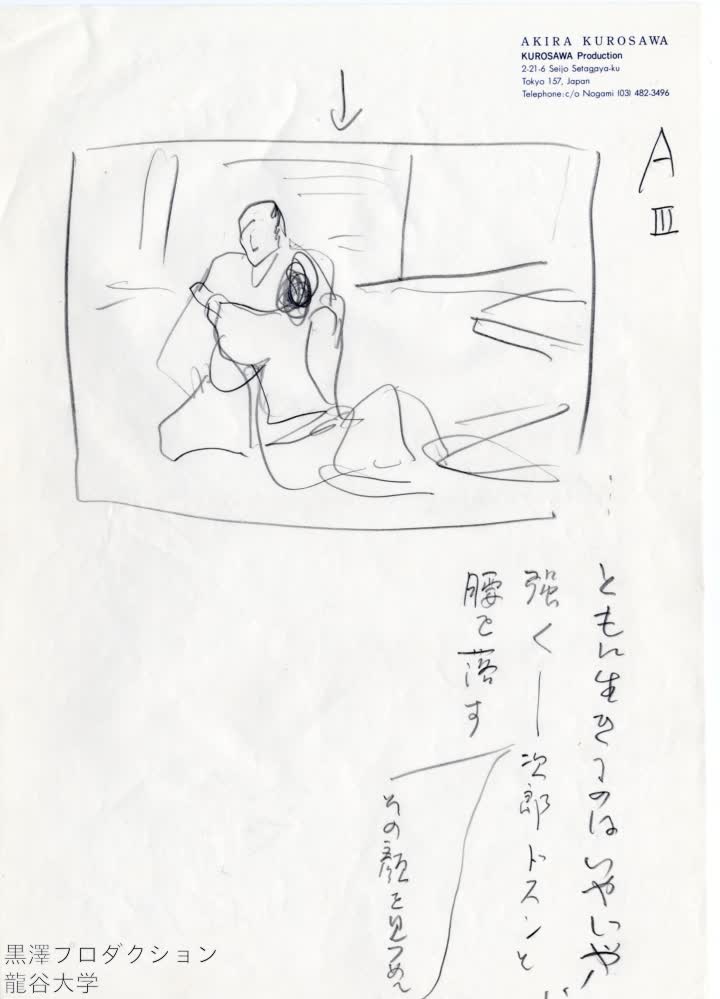 AKIRA KUROSAWA
KUROSAWA Production
2-21-6 Seijo Setagaya-ku
Tokyo 157, Japan
Telephone: c/o Nogami (03) 482-3496
A
III
ともに生きるのはいやいや!
強く— 次郎ドスンと
腰を落す
その顔を見つめ
黒澤プロダクション
龍谷大学